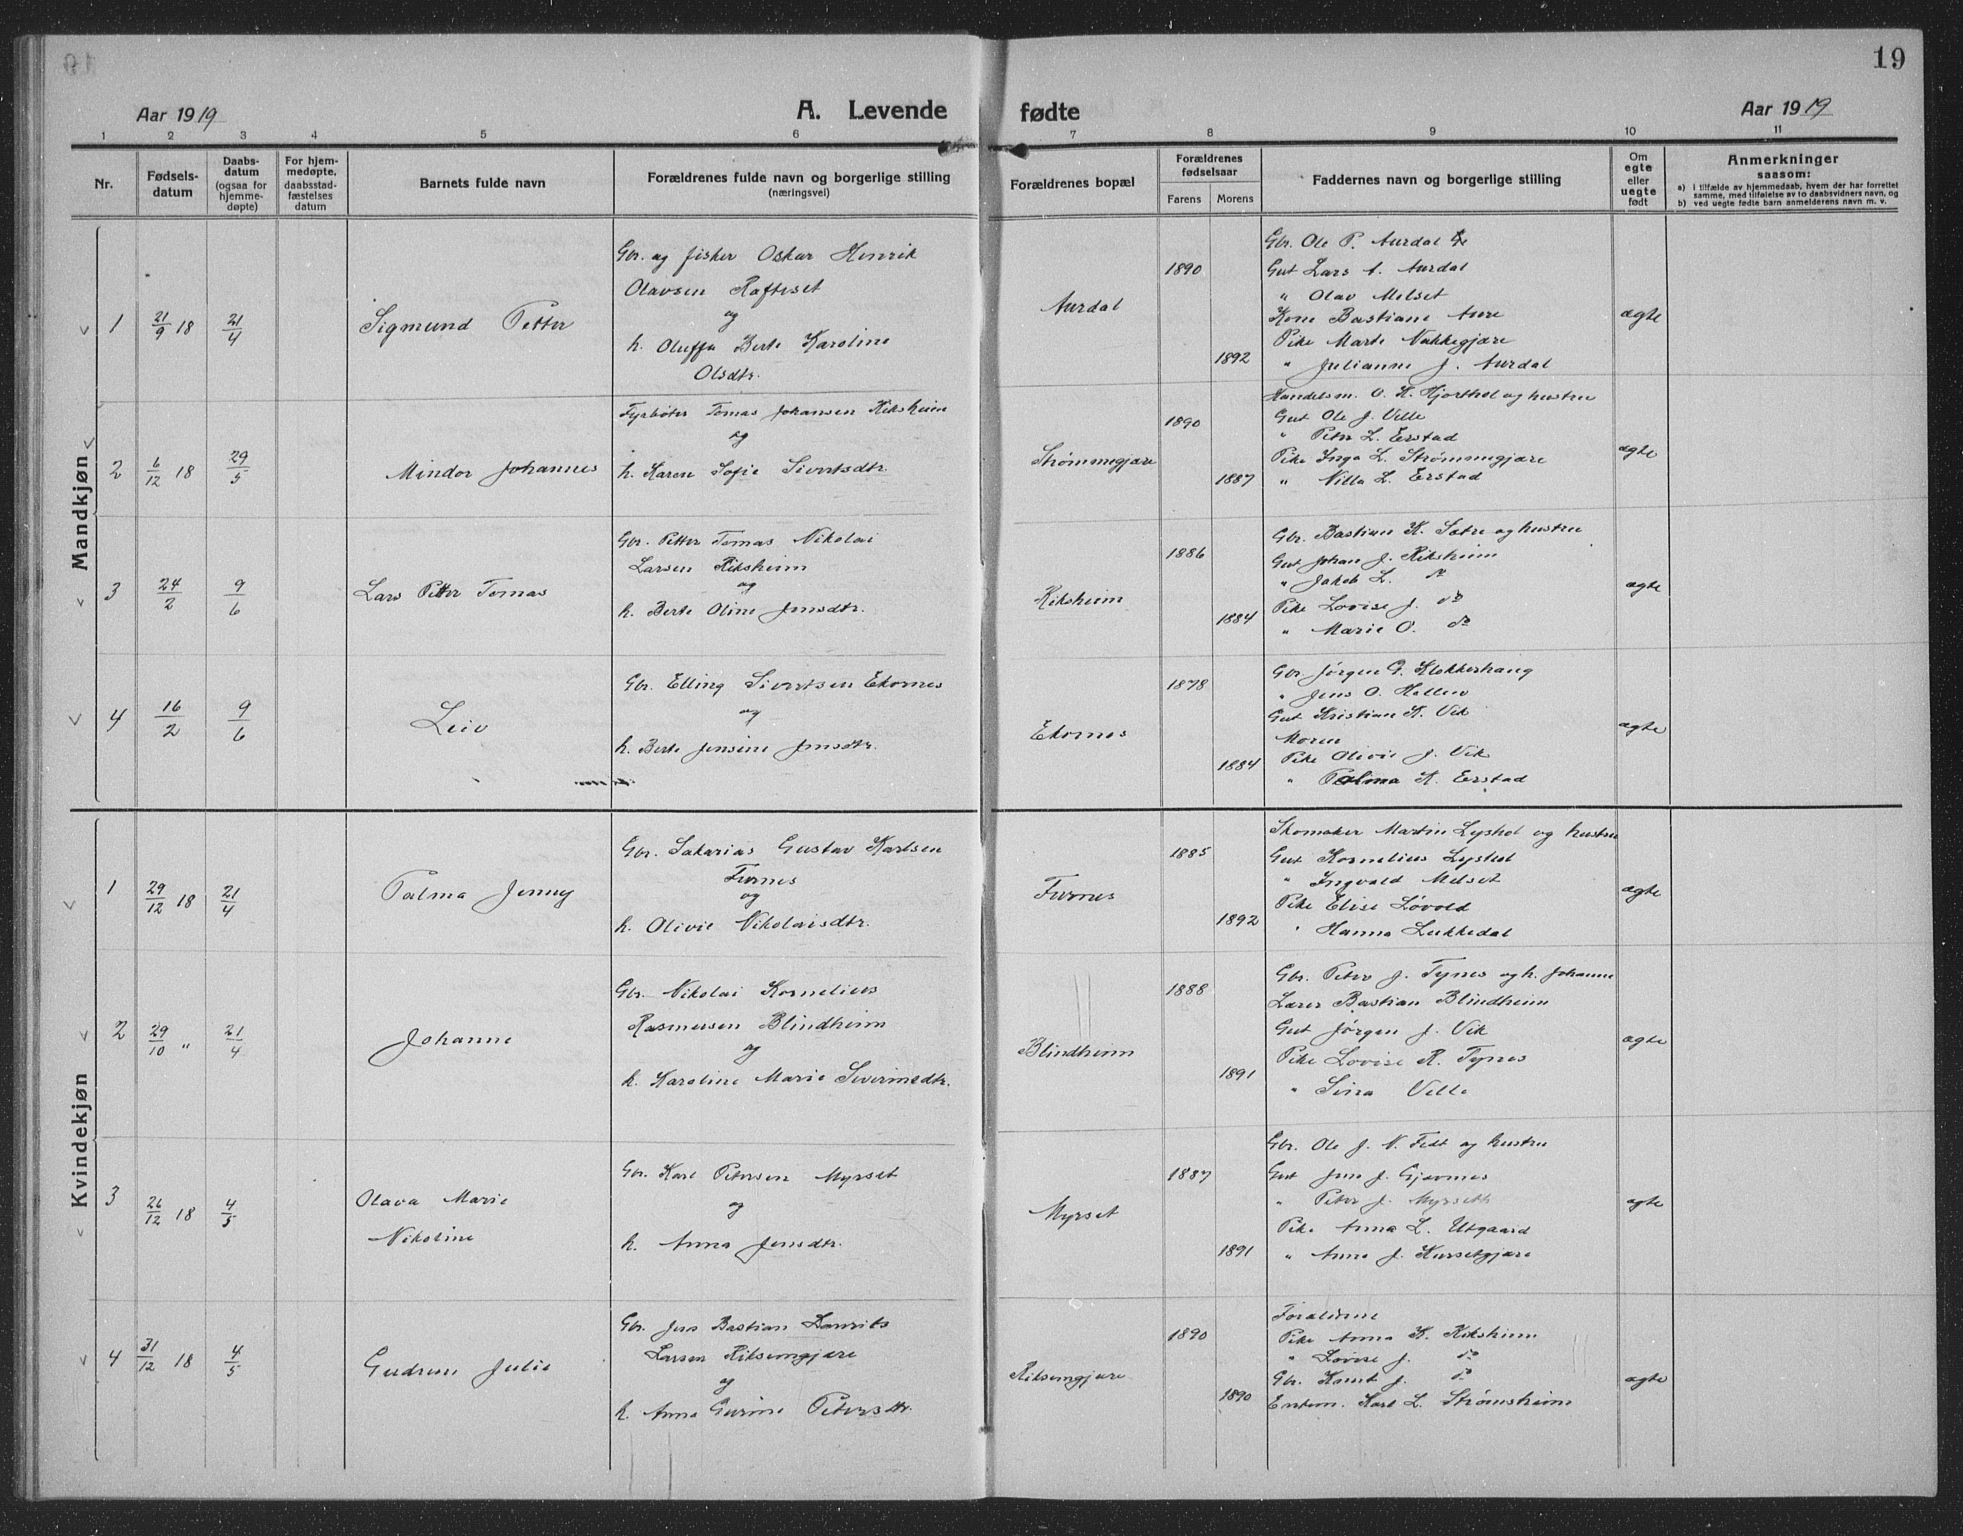 19
Aar 1919
A. Levende
fødte
Aar 1919
1 2 3 4 5 6 7 8 9 10 11
Nr.
Fødsels-
datum
Daabs-
datum
(ogsaa for
hjemme-
døpte)
For hjem-
medøpte,
daabsstad-
fæstelses
datum
Barnets fulde navn
Forældrenes fulde navn og borgerlige stilling
(næringsvei)
Forældrenes bopæl
Forældrenes
fødselsaar
Farens Morens
Faddernes navn og borgerlige stilling
Om
egte
eller
uegte
født
Anmerkninger
saasom:
a) i tilfælde av hjemmedaab, hvem der har forrettet
samme, med tilføielse av to daabsvidners navn, og
b) ved uegte fødte barn anmelderens navn m. v.
Mandkjøn
1 21/9 18 21/4
Sigmund Petter
Gbr. og fisker Oskar Henrik
Olavsen Rafteset
og
h. Oluffa Berte Karoline
Olsdtr.
Aurdal
1890
1892
Gbr. Ole P. Aurdal
Gut Lars A. Aurdal
" Olav Melset
Kone Bastiane Aure
Pike Marte Nakkegjære
" Julianne J. Aurdal
ægte
2 6/12 18 29/5
Mindor Johannes
Fyrbøter Tomas Johansen Riksheim
og
h. Karen Sofie Sivertsdtr
Strømmegjære
1890
1887
Handelsm. O. K. Hjorthol og hustru
Gut Ole J. Velle
" Peter L. Erstad
Pike Inga L. Strømmegjære
" Nilla L. Erstad
ægte
3 24/2 9/6
Lars Petter Tomas
Gbr. Petter Tomas Nikolai
Larsen Riksheim
og
h. Berte Oline Jensdtr.
Riksheim
1886
1884
Gbr. Bastian K. Sætre og hustru
Gut Johan J. Riksheim
" Jakob L. do
Pike Lovise J. do
" Marie O. do
ægte
4 16/2 9/6
Leiv
Gbr. Elling Sivertsen Ekornes
og
h. Berte Jensine Jensdtr.
Ekornes
1878
1884
Gbr Jørgen G. Klokkerhaug
" Jens O. Hellen
Gut Kristian K. Vik
Moren
Pike Olivie J. Vik
" Palma K. Erstad
ægte
Kvindekjøn
1 29/12 18 21/4
Palma Jenny
Gbr. Sakarias Gustav Karlsen
Furnes
og
h. Olivie Nikolaisdtr.
Furnes
1885
1892
Skomaker Martin Lyshol og hustru
Gut Kornelius Lyshol
" Ingvald Melset
Pike Elise Løvold
" Hanna Lukkedal
ægte
2 29/10 " 21/4
Johanne
Gbr. Nikolai Kornelius
Rasmussen Blindheim
og
h. Karoline Marie Severinsdtr.
Blindheim
1888
1891
Gbr. Peter J. Tynes og h. Johanne
Lærer Bastian Blindheim
Gut Jørgen J. Vik
Pike Lovise R. Tynes
" Sina Velle
ægte
3 26/12 18 4/5
Olava Marie
Nikoline
Gbr. Karl Petersen Myrset
og
h. Anna Jensdtr.
Myrset
1887
1891
Gbr. Ole J. N. Fedt og hustru
Gut Jens J. Gjævenes
" Peter J. Myrseth
Pike Anna L. Utgaard
" Anne J. Kursetgjære
ægte
4 31/12 18 4/5
Gudrun Julie
Gbr. Jens Bastian Laurits
Larsen Riksemgjære
og
h. Anna Gurine Petersdtr.
Riksemgjære
1890
1890
Forældrene
Pike Anna K. Riksheim
" Lovise J. do
Gbr. Knut J. do
Enkem. Karl L. Strømsheim
ægte